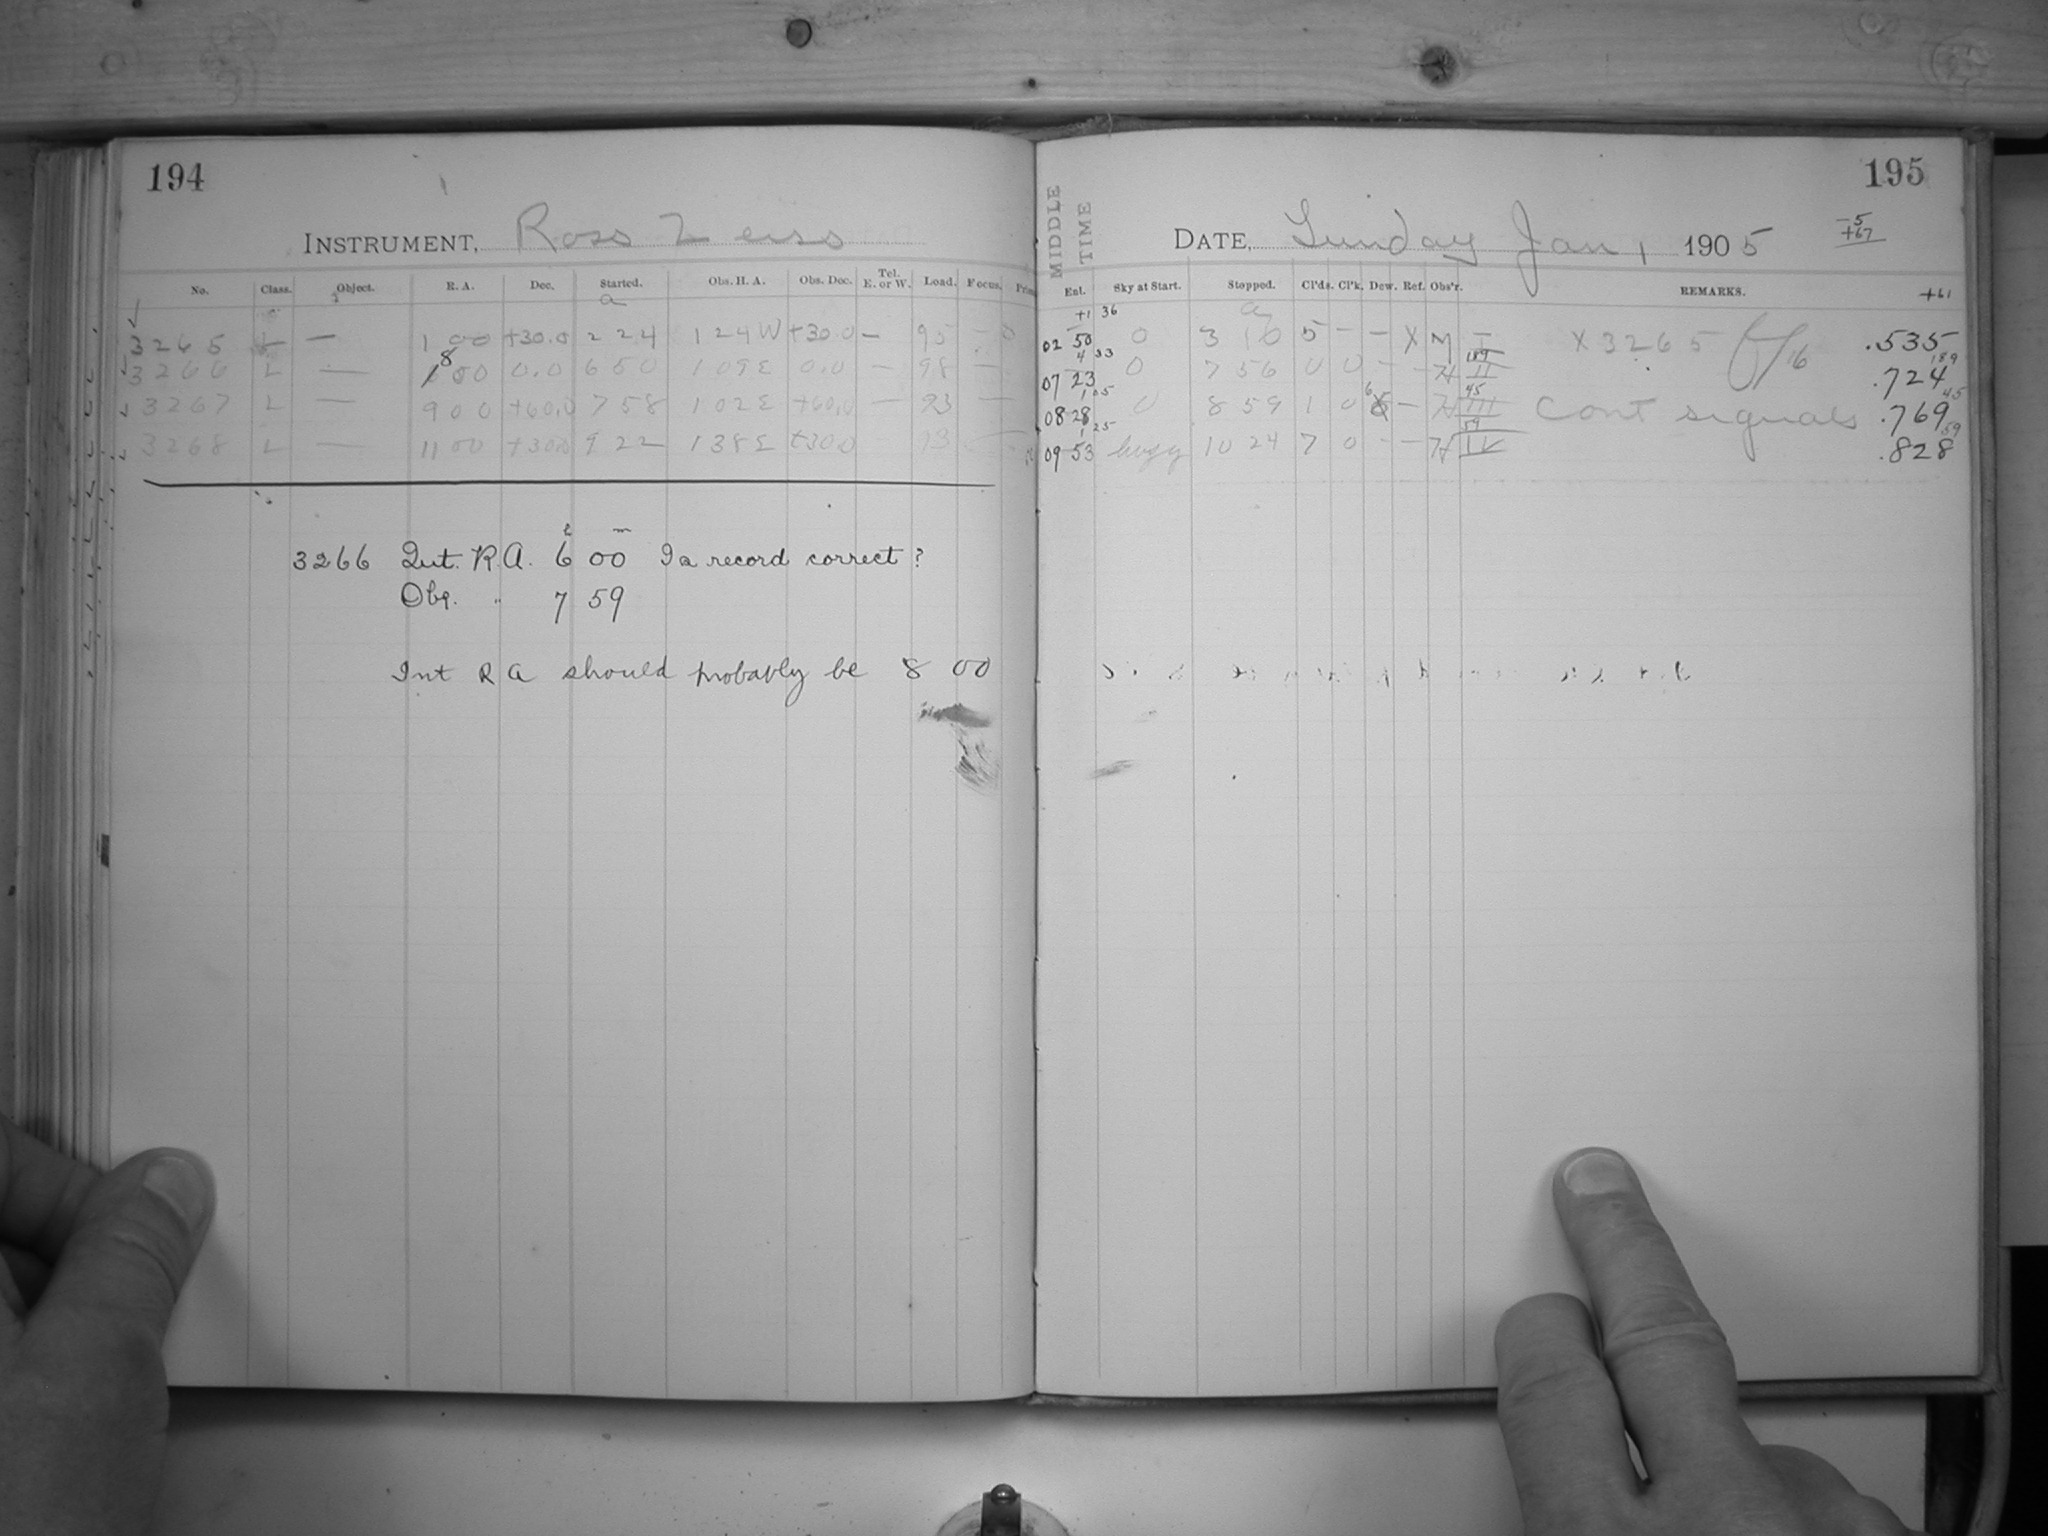 194
INSTRUMENT, Ross Zeiss
No. Class. Object. R. A. Dec. Started. Obs. H. A. Obs. Dec. Tel. E. or W. Load. Focus.
a
3265 L — 1 00 +30.0 2 24 1 24 W +30.0 — 95 —
3266 L — 8 00 0.0 6 50 1 09 E 0.0 — 98 —
3267 L — 9 00 +60.0 7 58 1 02 E +60.0 — 93 —
3268 L — 11 00 +30.0 9 22 1 38 E +30.0 93 —
h m
3266 Int. R.A. 6 00 Is record correct?
Obs. " 7 59
Int R A should probably be 8 00
195
MIDDLE TIME
DATE, Sunday Jan 1 1905
-5
+67
Ent. Sky at Start. Stopped. Cl'ds. Cl'k. Dew. Ref. Obs'r. REMARKS. +61
+1 36 a
02 50 0 3 10 5 — — X M I X 3265 .535
4 33 189 189
07 23 0 7 56 0 0 — - H II .724
1 05 45 45
08 28 0 8 59 1 0 — H III Cont signals .769
1 25 59 59
09 53 hazy 10 24 7 0 - — H IV .828